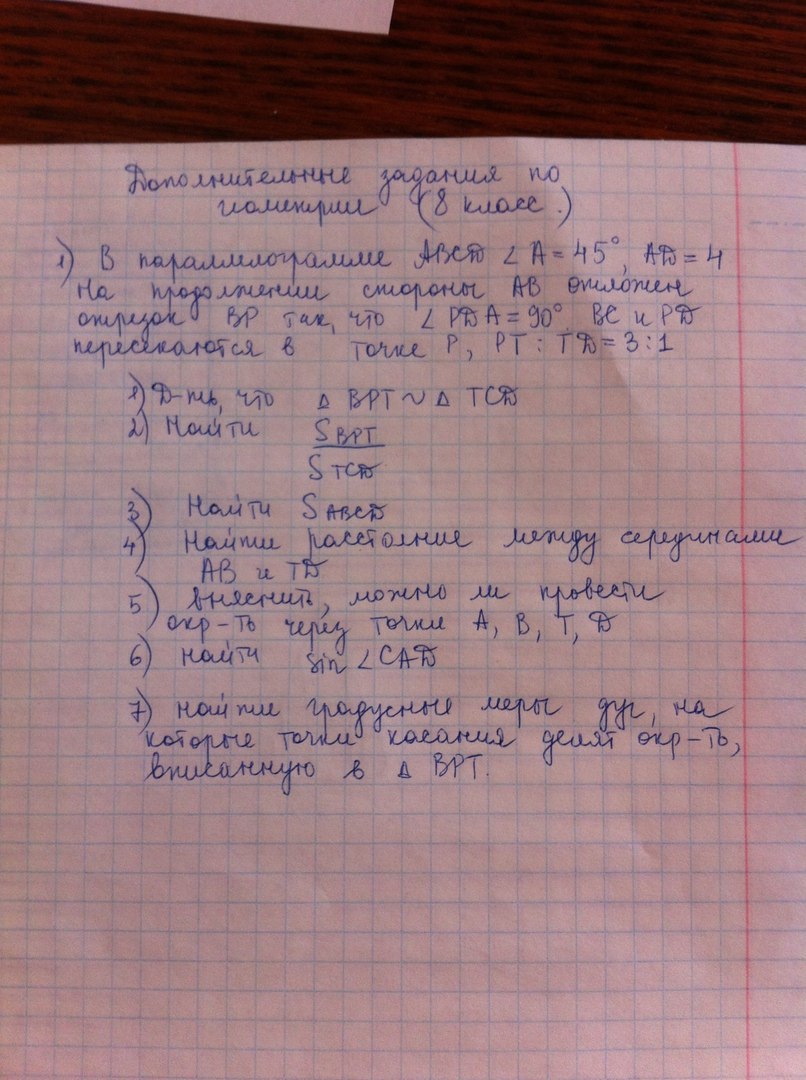 Дополнительные задания по
геометрии (8 класс.)
1) В параллелограмме ABCD ∠A = 45°, AD = 4
На продолжении стороны AB отложен
отрезок BP так, что ∠PDA = 90°, BC и PD
пересекаются в точке P, PT : TD = 3 : 1
1) Д-ть, что Δ BPT ~ Δ TCD
2) Найти S BPT
S TCD
3) Найти S ABCD
4) Найти расстояние между серединами
AB и TD
5) выяснить, можно ли провести
окр-ть через точки A, B, T, D
6) найти sin ∠CAD
7) найти градусные меры дуг, на
которые точки касания делят окр-ть,
вписанную в Δ BPT.